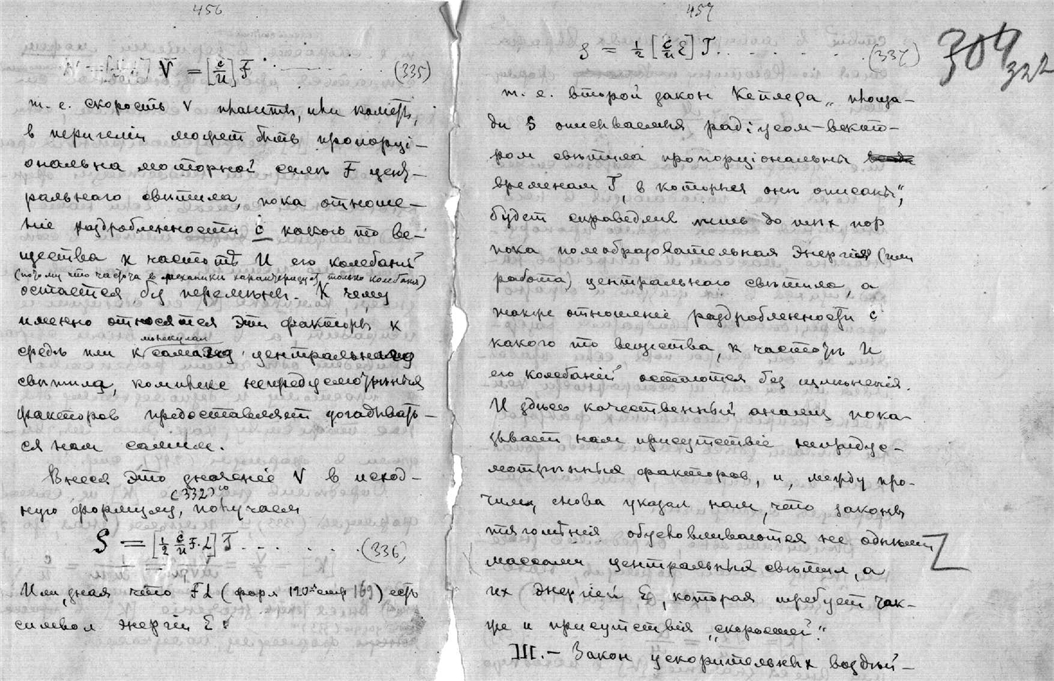 456
V = [c/и] F . . . . . . . (335)
т. е. скорость V планеты, или кометы,
в перигелiи может быть пропорцi-
ональна моторной силѣ F цент-
ральнаго свѣтила, пока отноше-
нiе раздробленности c какого то ве-
щества к частотѣ И его колебанiй
(потому что частота в механики характеризует только колебания)
остается без перемѣны. К чему
именно относятся эти факторы к
средѣ или к самаго центральнаго
молекулам
свѣтила, комплекс непредусмотрѣнных
факторов предоставляет догадывать-
ся нам самим.
Внеся это значенiе V в исход-
ную формулу, получаем
(332)
S = [½ c/и F·L] T . . . . . . . (336)
Или, зная что FL (форм 120 стр 169) есть
символ энергiи E:
457
S = ½ [c/и E] T. . (337)
309
322
т. е. второй закон Кеплера „площа-
ди S описываемыя радiусом-векто-
ром свѣтила пропорцiональны
временам T, в которыя онѣ описаны",
будет справедлив лишь до тѣх пор
пока полеобразовательная энергiя (или
работа) центральнаго свѣтила, а
также отношенiе раздробленности c
какого то вещества, к частотѣ И
его колебанiй остаются без измѣненiя.
И здѣсь качественный анализ пока-
зывает нам присутствiе непреду-
смотрѣнных факторов, и, между про-
чим, снова указал нам, что законы
тяготѣнiя обусловливаются не одними
массами центральных свѣтил, а
их энергiей E, которая требует так-
же и присутствiя „скоростей".
III. — Закон ускорительных воздѣй-